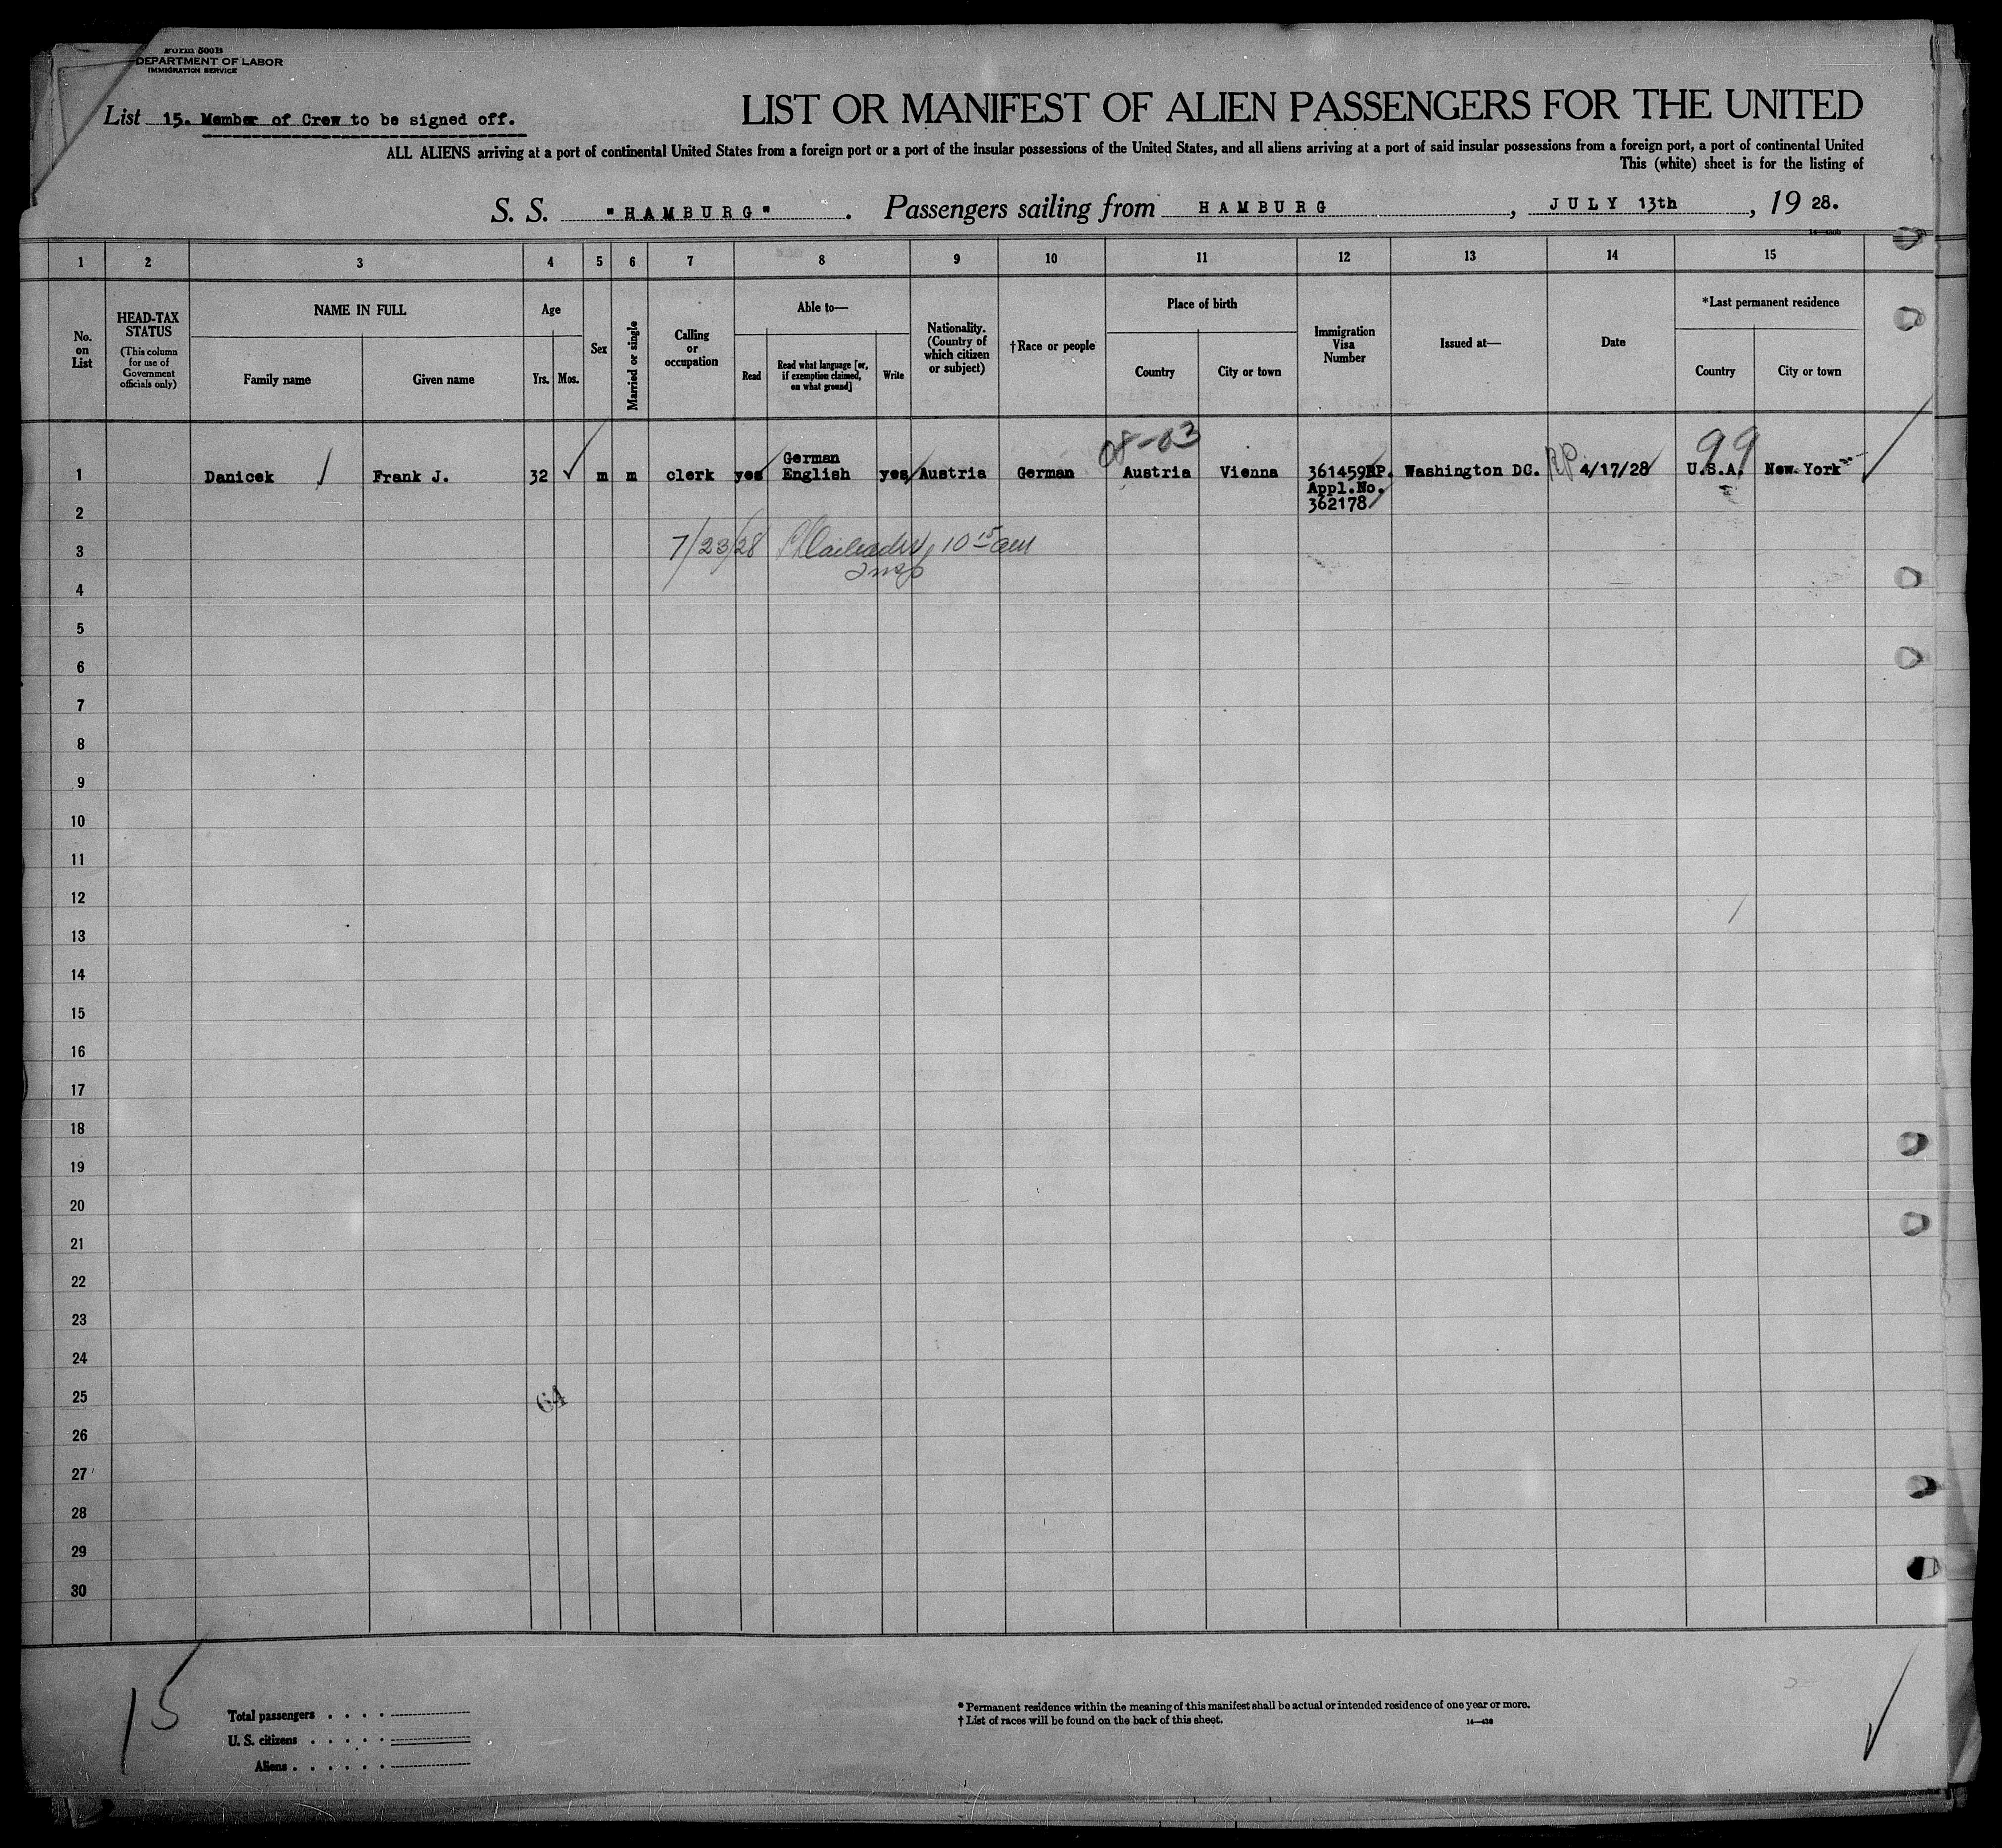 Form 500B
DEPARTMENT OF LABOR
IMMIGRATION SERVICE
List 15. Member of Crew to be signed off.
LIST OR MANIFEST OF ALIEN PASSENGERS FOR THE UNITED
ALL ALIENS arriving at a port of continental United States from a foreign port or a port of the insular possessions of the United States, and all aliens arriving at a port of said insular possessions from a foreign port, a port of continental United
This (white) sheet is for the listing of
S. S. "HAMBURG". Passengers sailing from HAMBURG, JULY 13th, 19 28.
1 2 3 4 5 6 7 8 9 10 11 12 13 14 15
No. on List
HEAD-TAX STATUS
(This column for use of Government officials only)
NAME IN FULL
Family name Given name
Age
Yrs. Mos.
Sex
Married or single
Calling or occupation
Able to—
Read
Read what language [or, if exemption claimed, on what ground]
Write
Nationality. (Country of which citizen or subject)
†Race or people
Place of birth
Country City or town
Immigration Visa Number
Issued at—
Date
*Last permanent residence
Country City or town
08-03 99
German
1 Danicek Frank J. 32 m m clerk yes English yes Austria German Austria Vienna 361459RP. Washington DC. RP 4/17/28 U.S.A. New York
Appl.No.
2 362178
3 7/23/28 10 15 am
Insp
4
5
6
7
8
9
10
11
12
13
14
15
16
17
18
19
20
21
22
23
24
25
64
26
27
28
29
30
15
Total passengers
U. S. citizens
Aliens
* Permanent residence within the meaning of this manifest shall be actual or intended residence of one year or more.
† List of races will be found on the back of this sheet.